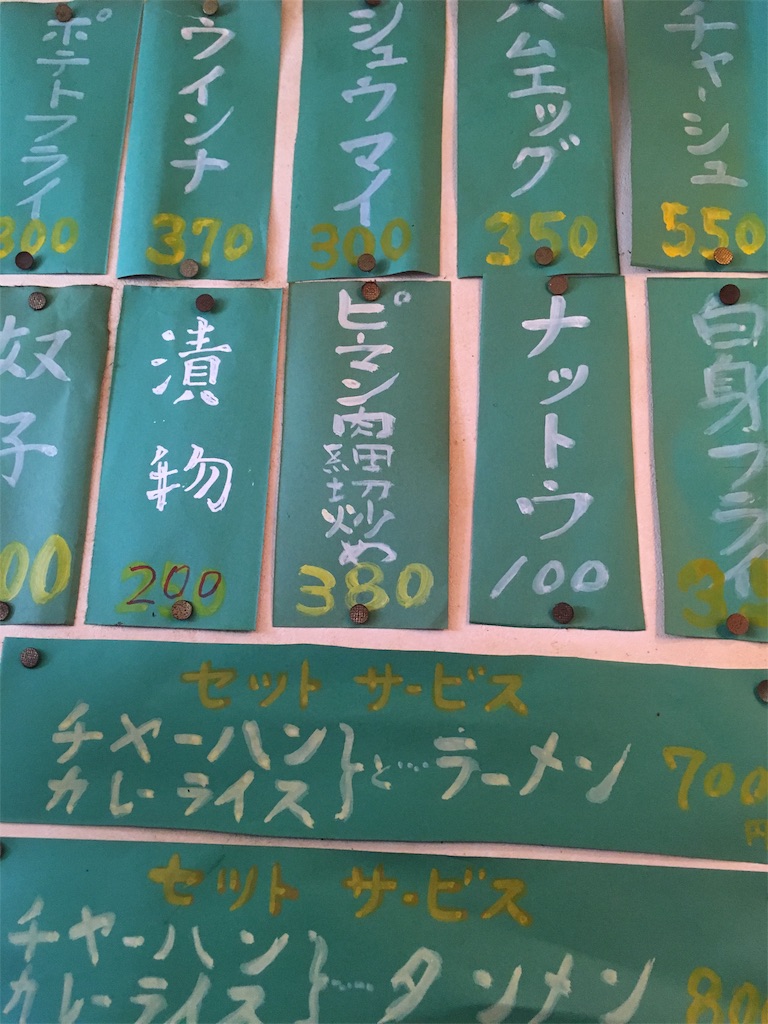 ポテトフライ
300
ウインナ
370
シュウマイ
300
ハムエッグ
350
チャーシュ
550
奴子
00
漬物
200
ピーマン肉細切炒め
380
ナットウ
100
白身フライ
3
セット サービス
チャーハン
カレーライス
}と…ラーメン
700
円
セット サービス
チャーハン
カレーライス
}…タンメン
800